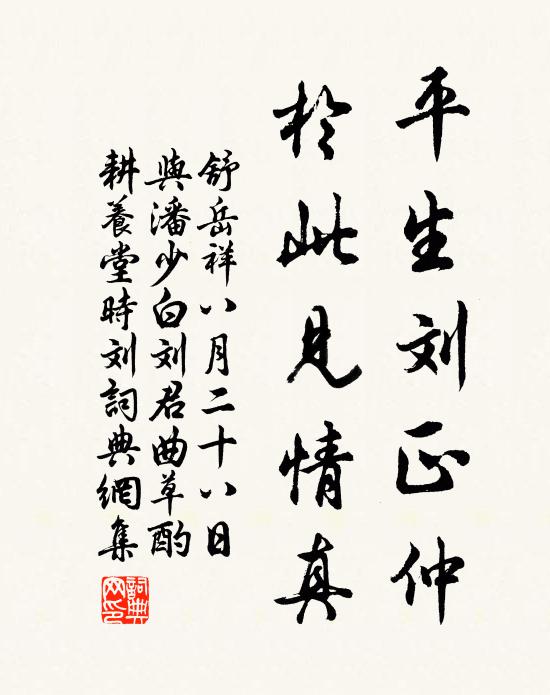 平生刘正仲
於此見情真
舒岳祥八月二十八日
與潘少白刘君曲草酌
耕養堂時刘詞典網集
詞典网印